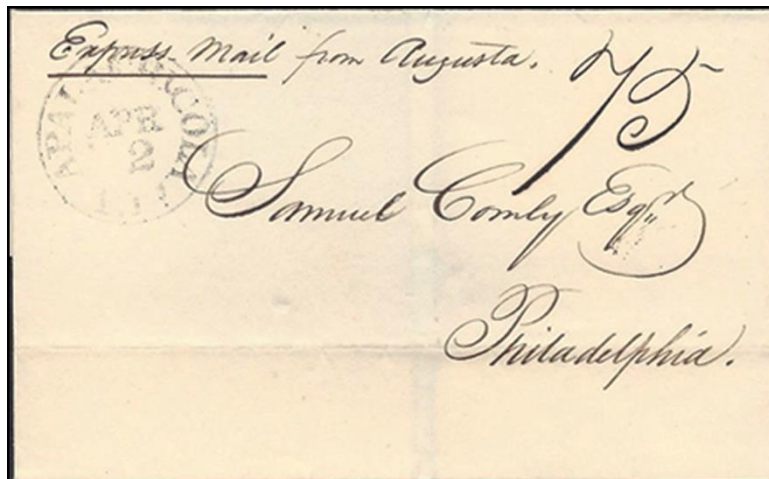 Express Mail from Augusta.
75
APR
2
Samuel Comly Esqr
Philadelphia.